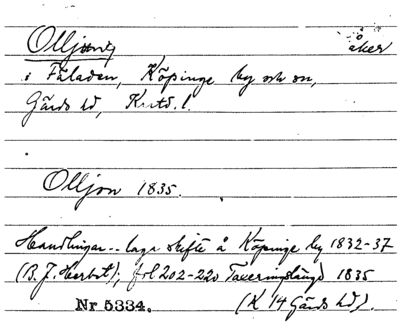 Olljon åker
i Fäladen, Köpinge by och sn,
Gärds hd, Krist. l.
Olljon 1835.
Handlingar .. laga skifte å Köpinge by 1832-37
(B. J. Herbst); fol 202-220 Taxeringslängd 1835
Nr 5334. (K 14 Gärds hd).